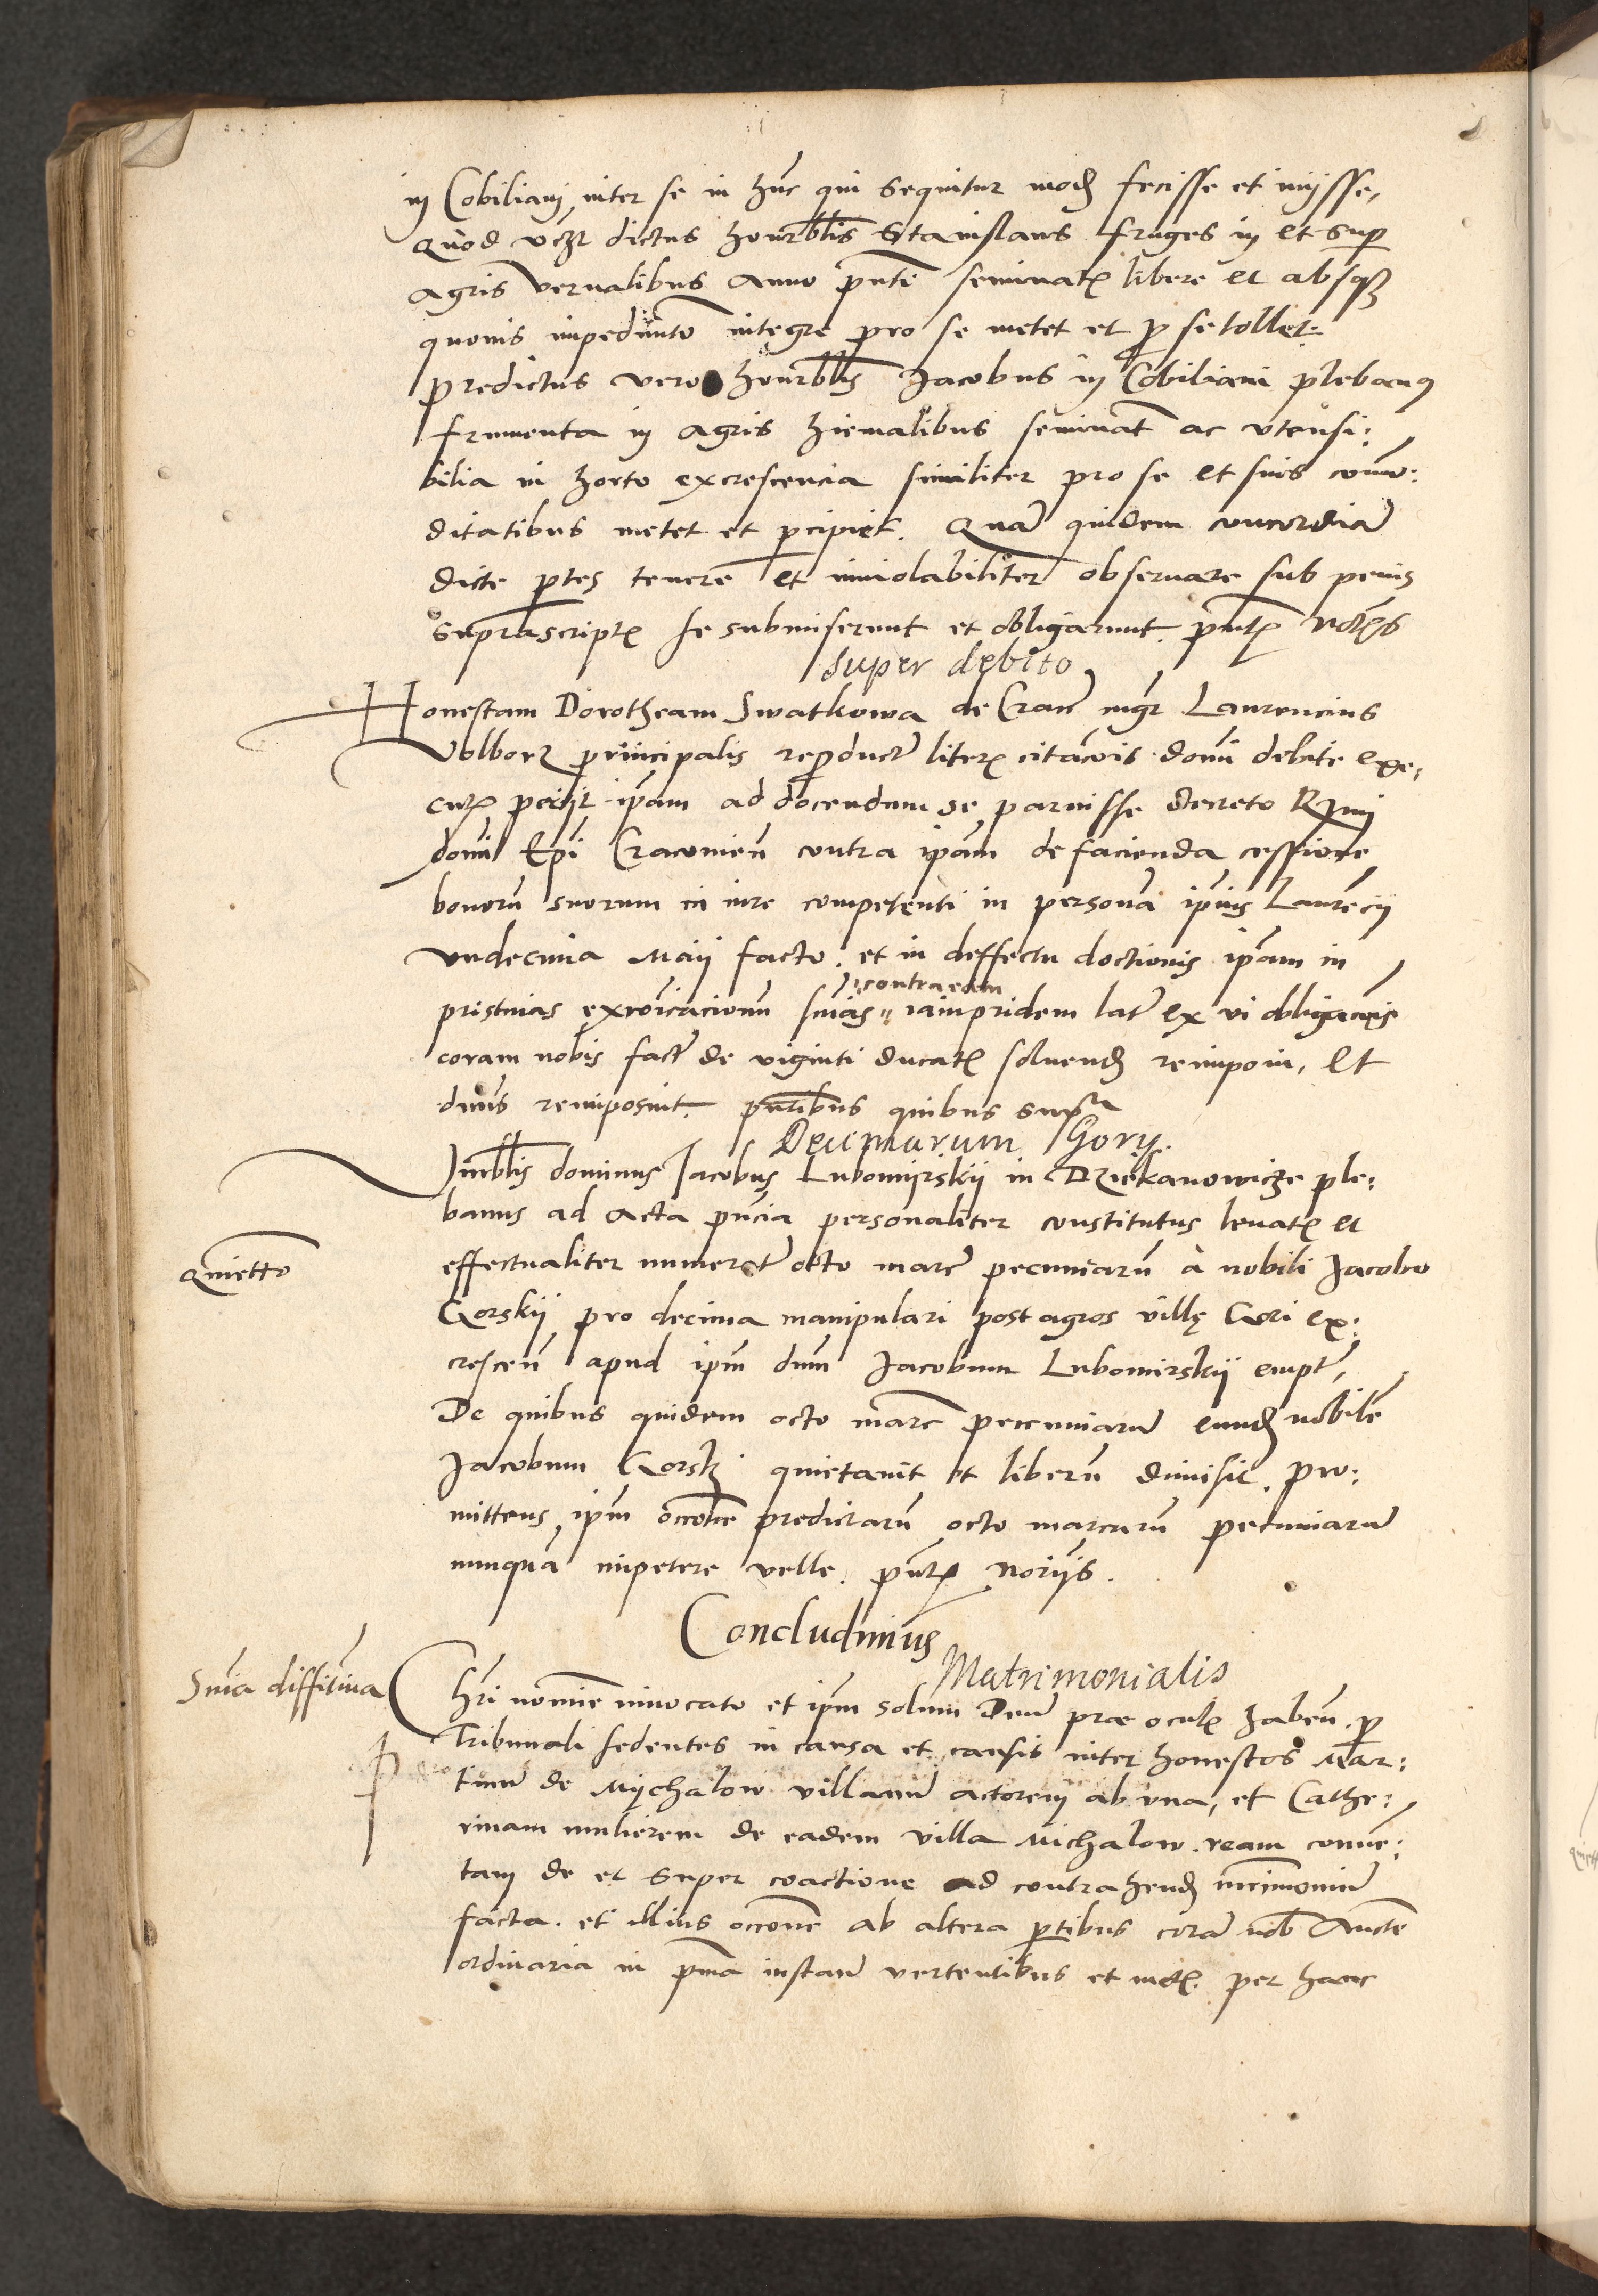 in Cobiliani inter se in hunc qui sequitur mod fecisse et inijsse,
Quod vczt dictus honrblis Stanislaus fruges in et sup
agris vernalibus anno pnti seminat libere et absq
quouis impedimto integre pro se metet et p se tollet.
predictus vero honrblis Jacobus in Cobiliani plebanus
frumenta in agris hiemalibus seminat ac vtensi:
bilia in horto excrescencia similiter pro se et suis como:
ditatibus metet et pcipiet. Qua quidem concordia
dicte ptes tenere et inviolabiliter obseruare sub penis
suprascript se submiserunt et obligarunt. pntt
Super debito
Honestam Dorotheam Swatkowa de Crac mgr Laurencius
Volborz principalis reproduct liter citacois domi debite exe,
cut pecijt ipam ad docendum se paruisse decreto Rmi
domi Epi Cracouien contra ipam de facienda cessione
bonoru suorum in iure competenti in persona ipius Laurecij
vndecima Maij facto. et in deffectu doctionis ipam in
pristinas excoicacionum snias contra eam iampridem lat ex vi obligacois
coram nobis fact de viginti ducat soluend reimponi, et
dnus reimposuit. pntibus quibus supra
Decimarum Gory.
Honrblis dominus Jacobus Lubomirskij in Dziekanowicze ple:
banus ad acta pncia personaliter constitutus leuat et
Quietto
effectualiter numerat octo marc pecuniaru à nobili Jacobo
Gorskij pro decima manipulari post agros villę Gori ex:
crescen apud ipm dnm Jacobum Lubomirskij empt,
De quibus quidem octo marc pecuniaru eund nobile
Jacobum Gorsk quietauit et liberu dimisit. pro:
mittens ipm occoe predictaru octo marcaru pecuniaru
nunqua impetere velle. pntt Notrijs.
Concludimus
Matrimonialis
Snia diffitiua
Christi nomine inuocato et ipm solum Deu prae ocul haben. p
Tribunali sedentes in causa et causis inter honestos Mar:
tinu de Mychalow villanu actorem ab vna, et Cathe:
rinam mulierem de eadem villa Michalow ream conue:
tam de et super coactione ad contrahend mrimoniu
facta. et illius occone ab altera ptibus cora nob aucte
ordinaria in pma instan vertentibus et mot. per hanc